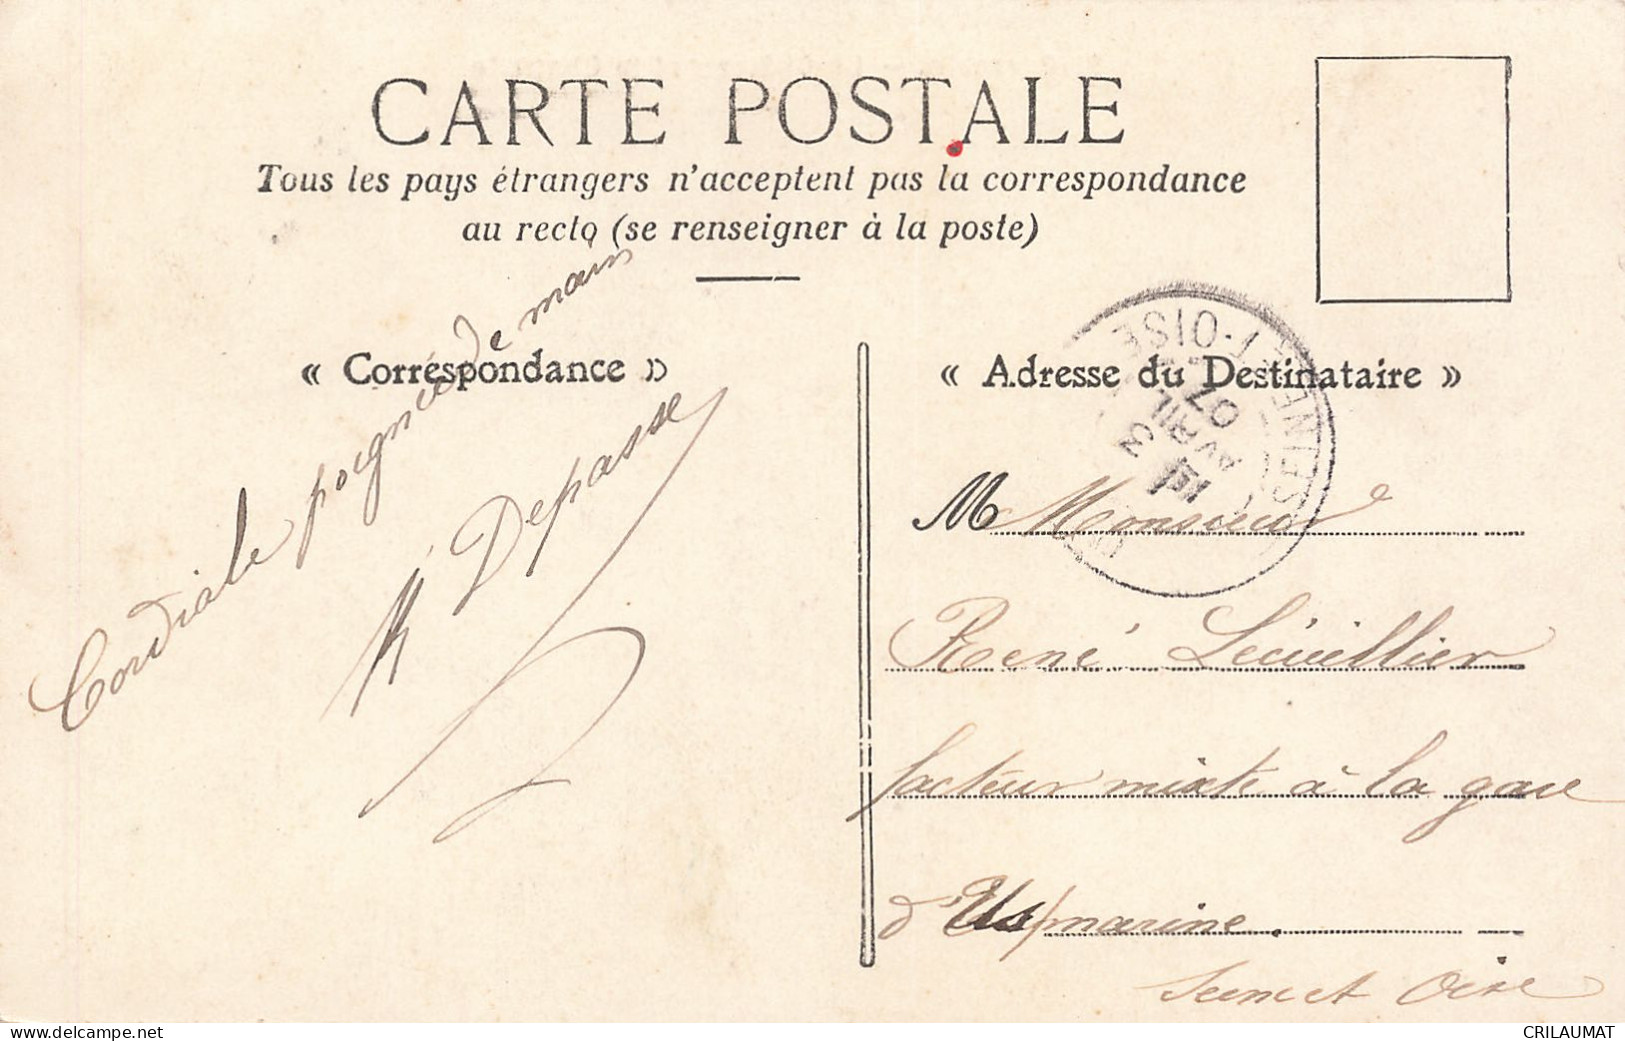 CARTE POSTALE
Tous les pays étrangers n'acceptent pas la correspondance
au recto (se renseigner à la poste)
« Correspondance »
« Adresse du Destinataire »
Cordiale poignée de main
Depasse
SEINE-ET-OISE
3
AVRIL
07
M Monsieur
René Lécuillier
facteur mixte à la gare
d'Us/marine.
Seine et Oise
www.delcampe.net
CRILAUMAT